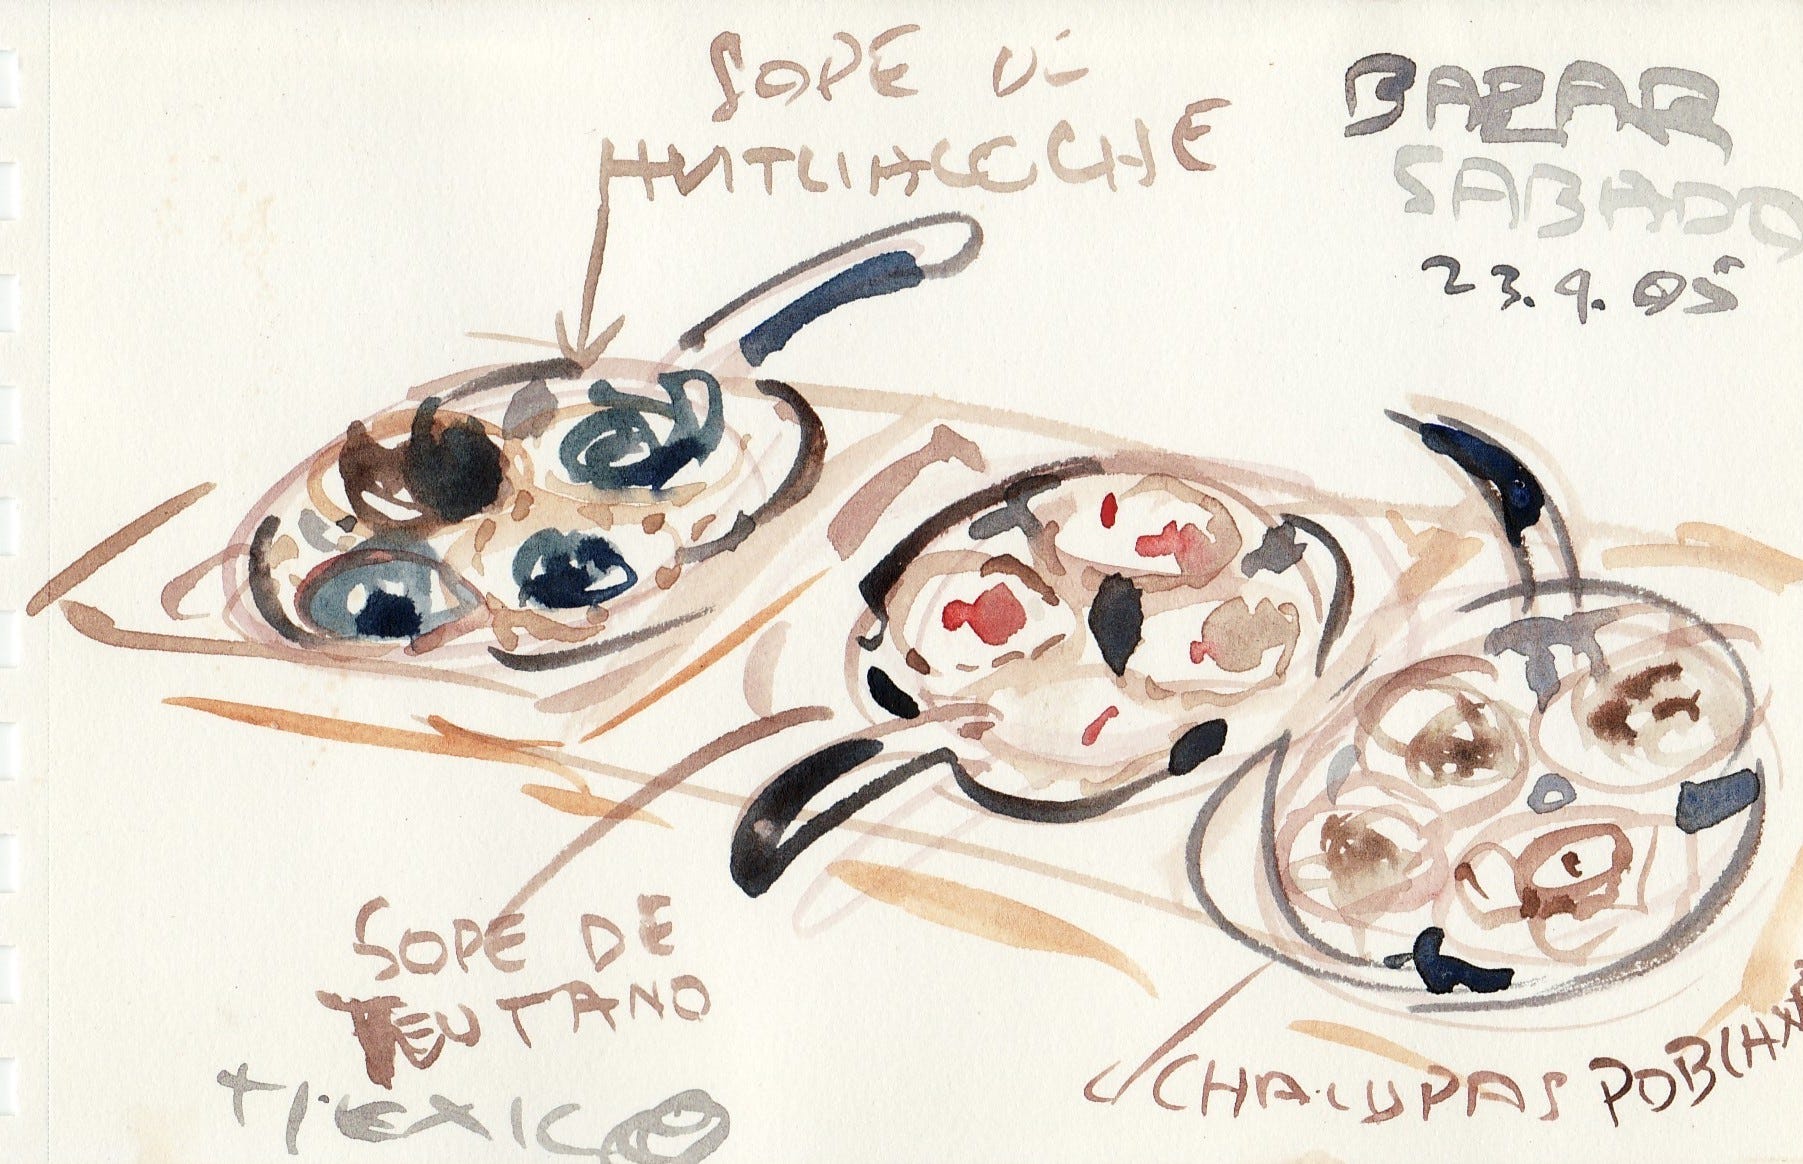 SOPE DE
HUITLACOCHE
BAZAR
SABADO
23.9.05
SOPE DE
TEUTANO
MEXICO
CHALUPAS